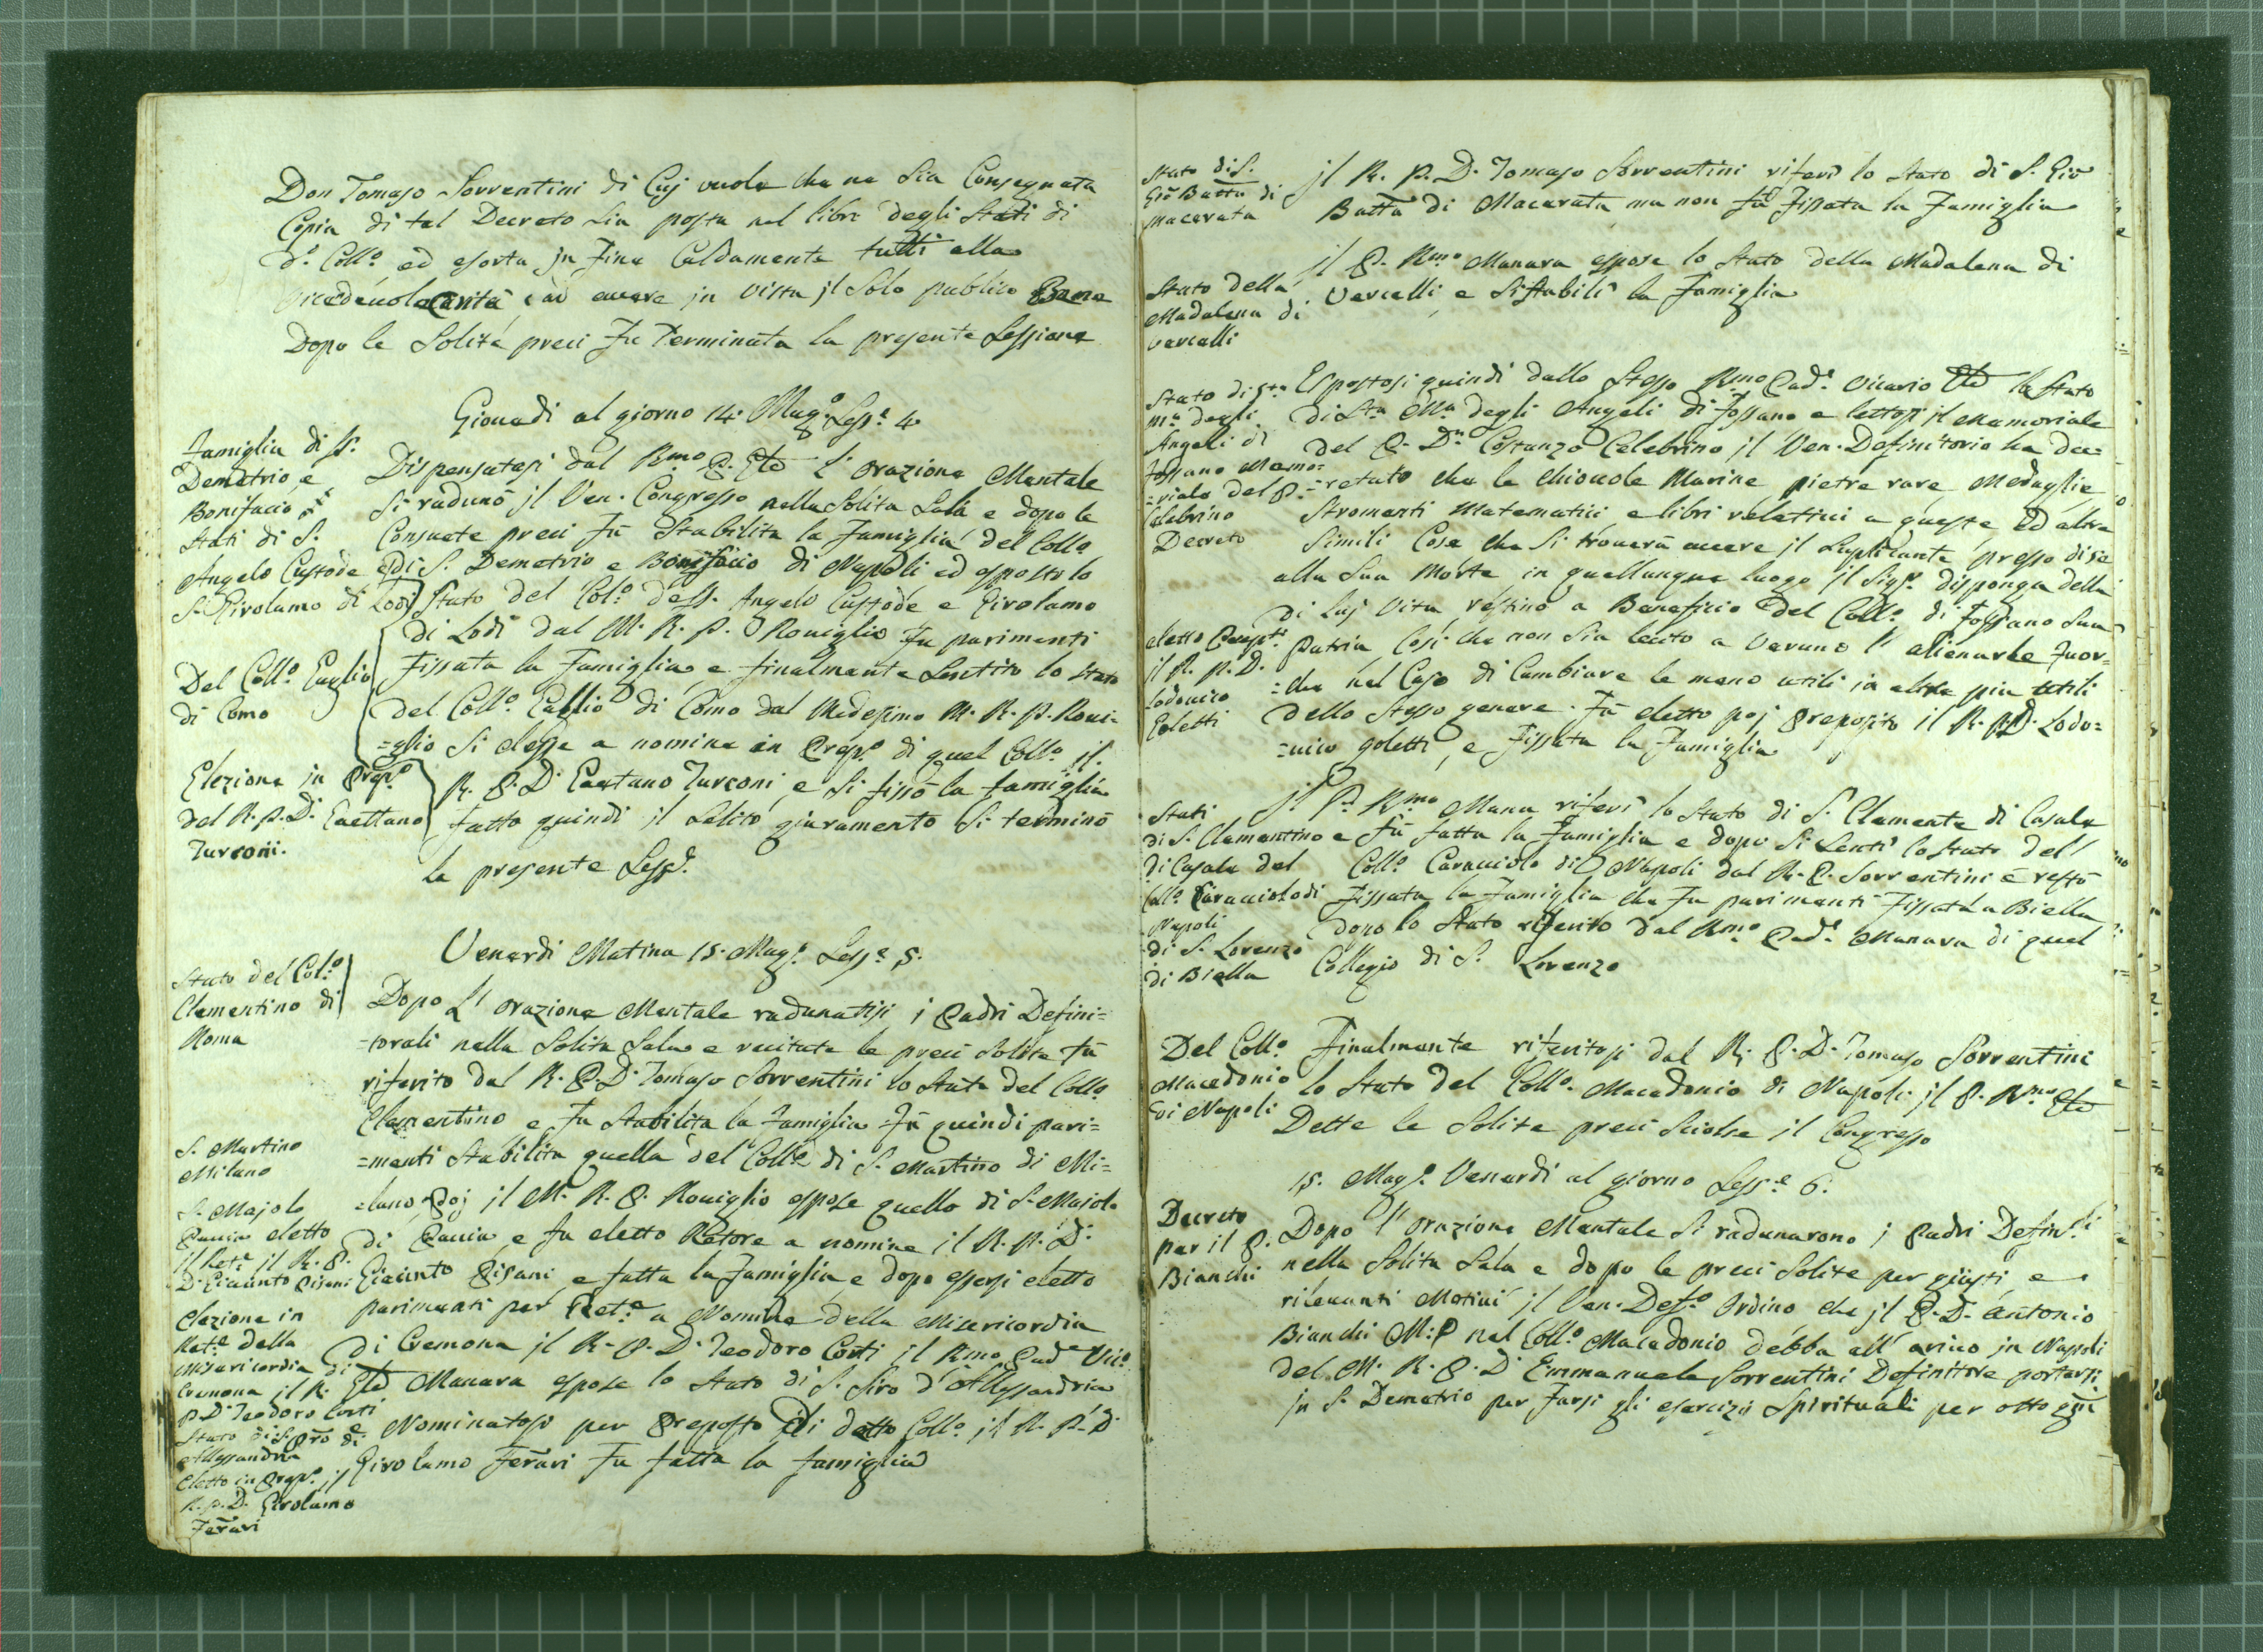 Don Tomaso Sorrentini di Cuj vuole che ne sia Consegnata
Copia di tal Decreto sia posta nel libro degli Stati di
d.o Coll.o ed esorta jn Fine Caldamente tutti alla
Carità, ed avere jn vista jl solo publico Bene
Dopo le Solite preci Fu Terminata la presente Sessione
Giovedì al giorno 14. Mag.o Sess.e 4
Famiglia di S.
Demetrio, e
Bonifacio
Stati di S.
Angelo Custode e di
S. Girolamo di Lodi
Del Coll.o Gaglio
di Como
Elezione in Prep.o
del R. P. D. Gaettano
Turconi.
Dispensatasi dal R.mo P. Gle L' orazione Mentale
si radunò jl Ven. Congresso nella Solita Sala e dopo le
Consuete preci Fù Stabilita la Famiglia del Coll.o
di S. Demetrio e Bonifacio di Napoli ed esposto lo
Stato del Col.o de SS. Angelo Custode e Girolamo
di Lodi dal M. R. P. Roviglio Fu parimenti
Fissata la Famiglia, e finalmente Sentito lo Stato
del Coll.o Gallio di Como dal Medesimo M. R. P. Rovi=
=glio si elesse a nomina in Prep.o di quel Coll.o jl
R. P. D. Gaetano Turconi, e si fissò la famiglia
Fatto quindi jl Solito giuramento si terminò
la presente Sess.e
Venerdì Matina 15. Mag.o Sess.e 5.
Stato del Col.o
Clementino di
Roma
S. Martino
Milano
S. Majolo
Pavia eletto
jl Ret.e jl R. P.
D. Giacinto Pisani
elezione in
Ret.e della
Misericordia di
Cremona jl R.
P. D. Teodoro Corti
Stato di S. Siro di
Allessandria
eletto in Prep.o jl
R. P. D. Girolamo
Ferrari
Dopo L' orazione Mentale radunatisi j Padri Defini=
=torali nella Solita Sala e recitate le preci Solite Fù
riferito dal R. P. D. Tomaso Sorrentini lo Stato del Coll.o
Clementino e Fu Stabilita la Famiglia Fù quindi pari=
=menti Stabilita quella del Coll.o di S. Martino di Mi=
=lano, Poj jl M. R. P. Roviglio espose quello di S. Majolo
di Pavia, e fu eletto Retore a nomina il R. P. D.
Giacinto Pisani e fatta la Famiglia e dopo essersi eletto
parimenti per Ret.e a Nomina della Misericordia
di Cremona jl R. P. D. Teodoro Corti il R.mo Pad.e Vic.o
Gle Manara espose lo Stato di S. Siro d'Allessandria
Nominatosi per Preposto di detto Coll.o jl R. P. D.
Girolamo Ferrari Fu fatta la famiglia
Stato di S.
Gio Batta di
Macerata
jl R. P. D. Tomaso Sorrentini riferì lo Stato di S. Gio
Batta di Macerata ma non fù Fissata la Famiglia
Stato della
Madalena di
Vercelli
jl P. R.mo Manara espose lo Stato della Madalena di
Vercelli, e si stabilì la Famiglia
Stato di S.ta
M.a degli
Angeli di
Fossano Memo=
=riale del P.
Celebrino
Decreto
eletto Prepst.o
il R. P. D.
Lodovico
Goletti
Espostosi quindi dallo Stesso R.mo Pad.e Vicario Gle lo Stato
di S.ta M.a degli Angeli di Fossano e lettosi jl Memoriale
del P. D.n Costanzo Celebrino jl Ven. Definitorio ha dec=
=retato che le Chiocole Marine pietre rare Medaglie
Stromenti Matematici e libri relattivi a queste ed altre
Simili Cose che si troverà avere jl Suplicante presso di se
alla Sua Morte in quallunque luogo jl Sig.r disponga della
di Luj Vita, restino a Beneficio del Coll.o di Fossano Sua
Patria Così che non sia lecito a Veruno l' alienarle Fuor=
=che nel Caso di Cambiare le meno utili in altre più utili
dello Stesso genere. Fù eletto poj Preposito il R. P. D. Lodo=
=vico Goletti, e Fissata la Famiglia
Stati
di S. Clementino e
di Casale del
Coll.o Caracciolo di
Napoli
di S. Lorenzo
di Biella
jl P. R.mo Mana riferì lo Stato di S. Clemente di Casale
Fù fatta la Famiglia e dopo si Sentì lo Stato del
Coll.o Caracciolo di Napoli dal R. P. Sorrentini e restò
Fissata la Famiglia che Fu parimenti Fissata a Biella
dopo lo Stato riferito dal R.mo Pad.e Manara di quel
Collegio di S. Lorenzo
Del Coll.o
Macedonio
di Napoli
Finalmente riferitosi dal R. P. D. Tomaso Sorrentini
lo Stato del Coll.o Macedonio di Napoli jl P. R.mo Gle
Dette le Solite preci Sciolse jl Congresso
15. Mag.o Venerdì al giorno Sess.e 6.
Decreto
per il P.
Bianchi
Dopo l' orazione Mentale si radunarono j Padri Defin.li
nella Solita Sala e dopo le preci Solite per giusti, e
rilevanti Motivi jl Ven. Def.o Ordino che jl P. D. Antonio
Bianchi M: P nel Coll.o Macedonio debba all' arivo jn Napoli
del M. R. P. D. Emmanuele Sorrentini Definitore portarsi
jn S. Demetrio per Farsi gli esercizj Spirituali per otto gni